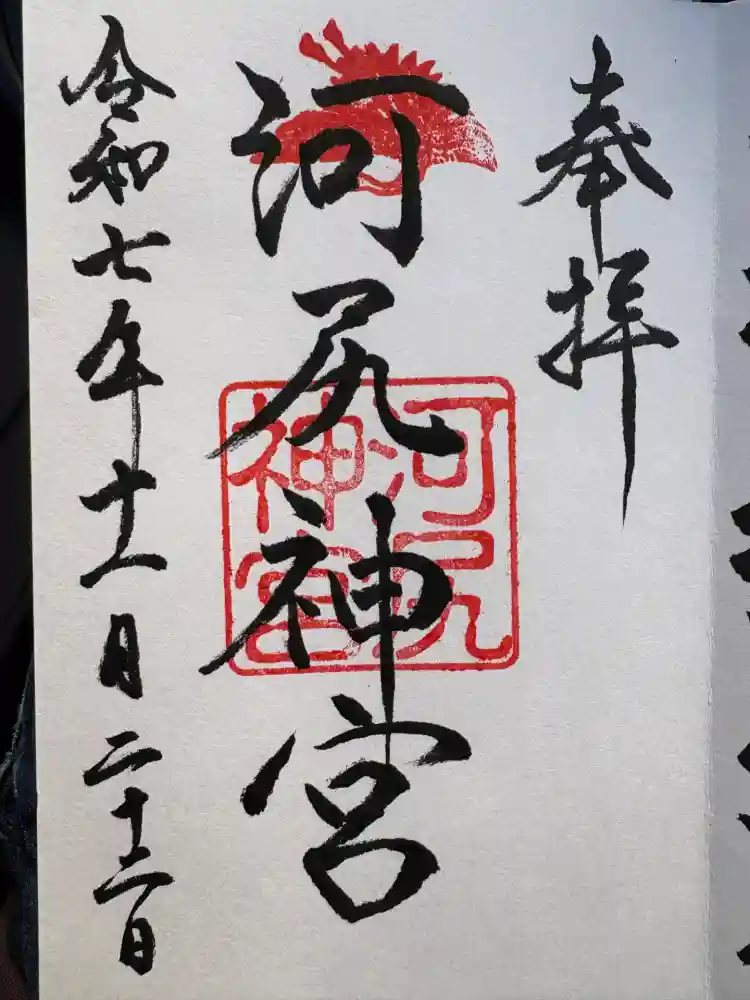 奉拝
河尻神宮
河尻
神宮
令和七年十一月二十二日